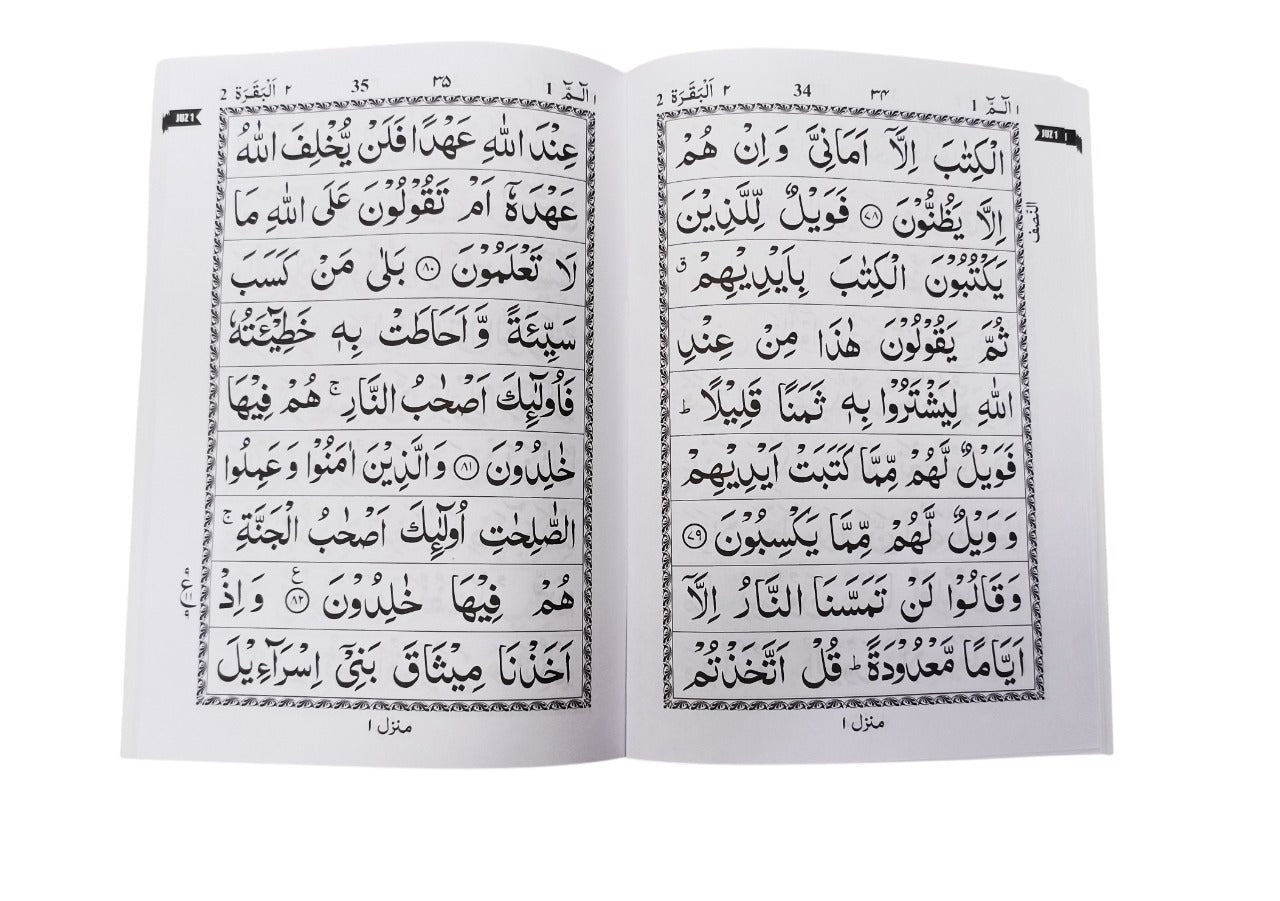 ۱ الٓمّٓ 1 ۳۴ 34 ۲ اَلْبَقَرَة 2
JUZ 1 ۱
الْكِتٰبَ اِلَّاۤ اَمَانِىَّ وَ اِنْ هُمْ
اِلَّا يَظُنُّوْنَ ﴿۷۸﴾ فَوَيْلٌ لِّلَّذِيْنَ
النصف
يَكْتُبُوْنَ الْكِتٰبَ بِاَيْدِيْهِمْ ق
ثُمَّ يَقُوْلُوْنَ هٰذَا مِنْ عِنْدِ
اللّٰهِ لِيَشْتَرُوْا بِهٖ ثَمَنًا قَلِيْلًا ط
فَوَيْلٌ لَّهُمْ مِّمَّا كَتَبَتْ اَيْدِيْهِمْ
وَ وَيْلٌ لَّهُمْ مِّمَّا يَكْسِبُوْنَ ﴿۷۹﴾
وَقَالُوْا لَنْ تَمَسَّنَا النَّارُ اِلَّاۤ
اَيَّامًا مَّعْدُوْدَةً ط قُلْ اَتَّخَذْتُمْ
منزل ۱
۱ الٓمّٓ 1 ۳۵ 35 ۲ اَلْبَقَرَة 2
JUZ 1
عِنْدَ اللّٰهِ عَهْدًا فَلَنْ يُّخْلِفَ اللّٰهُ
عَهْدَهٗۤ اَمْ تَقُوْلُوْنَ عَلَى اللّٰهِ مَا
لَا تَعْلَمُوْنَ ﴿۸۰﴾ بَلٰى مَنْ كَسَبَ
سَيِّئَةً وَّ اَحَاطَتْ بِهٖ خَطِيْٓئَتُهٗ
فَاُولٰٓئِكَ اَصْحٰبُ النَّارِ ج هُمْ فِيْهَا
خٰلِدُوْنَ ﴿۸۱﴾ وَ الَّذِيْنَ اٰمَنُوْا وَ عَمِلُوا
الصّٰلِحٰتِ اُولٰٓئِكَ اَصْحٰبُ الْجَنَّةِ ج
هُمْ فِيْهَا خٰلِدُوْنَ ﴿۸۲﴾ ع وَ اِذْ
اَخَذْنَا مِيْثَاقَ بَنِىْٓ اِسْرَآءِيْلَ
منزل ۱